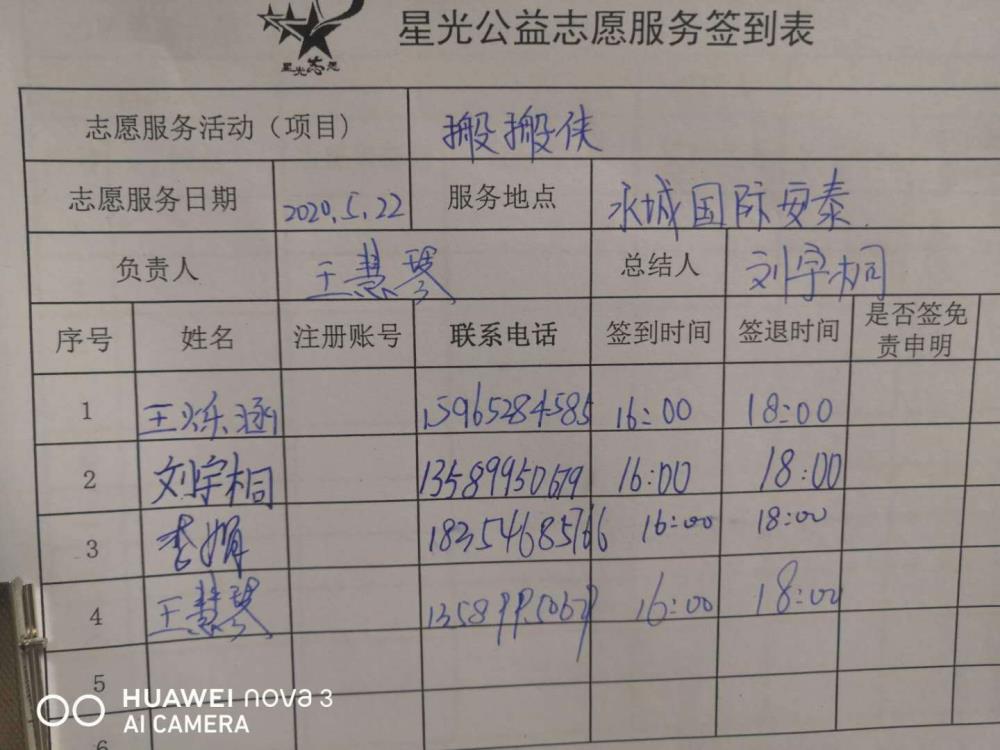 星光志愿
星光公益志愿服务签到表
志愿服务活动（项目） 搬搬侠
志愿服务日期 2020.5.22 服务地点 永城国际安泰.
负责人 王慧琴 总结人 刘宇桐
序号 姓名 注册账号 联系电话 签到时间 签退时间 是否签免责申明
1 王烁涵 15965284585 16:00 18:00
2 刘宇桐 13589950679 16:00 18:00
3 李娟 18354685766 16:00 18:00
4 王慧琴 13589950679 16:00 18:00
5
6
HUAWEI nova 3
AI CAMERA